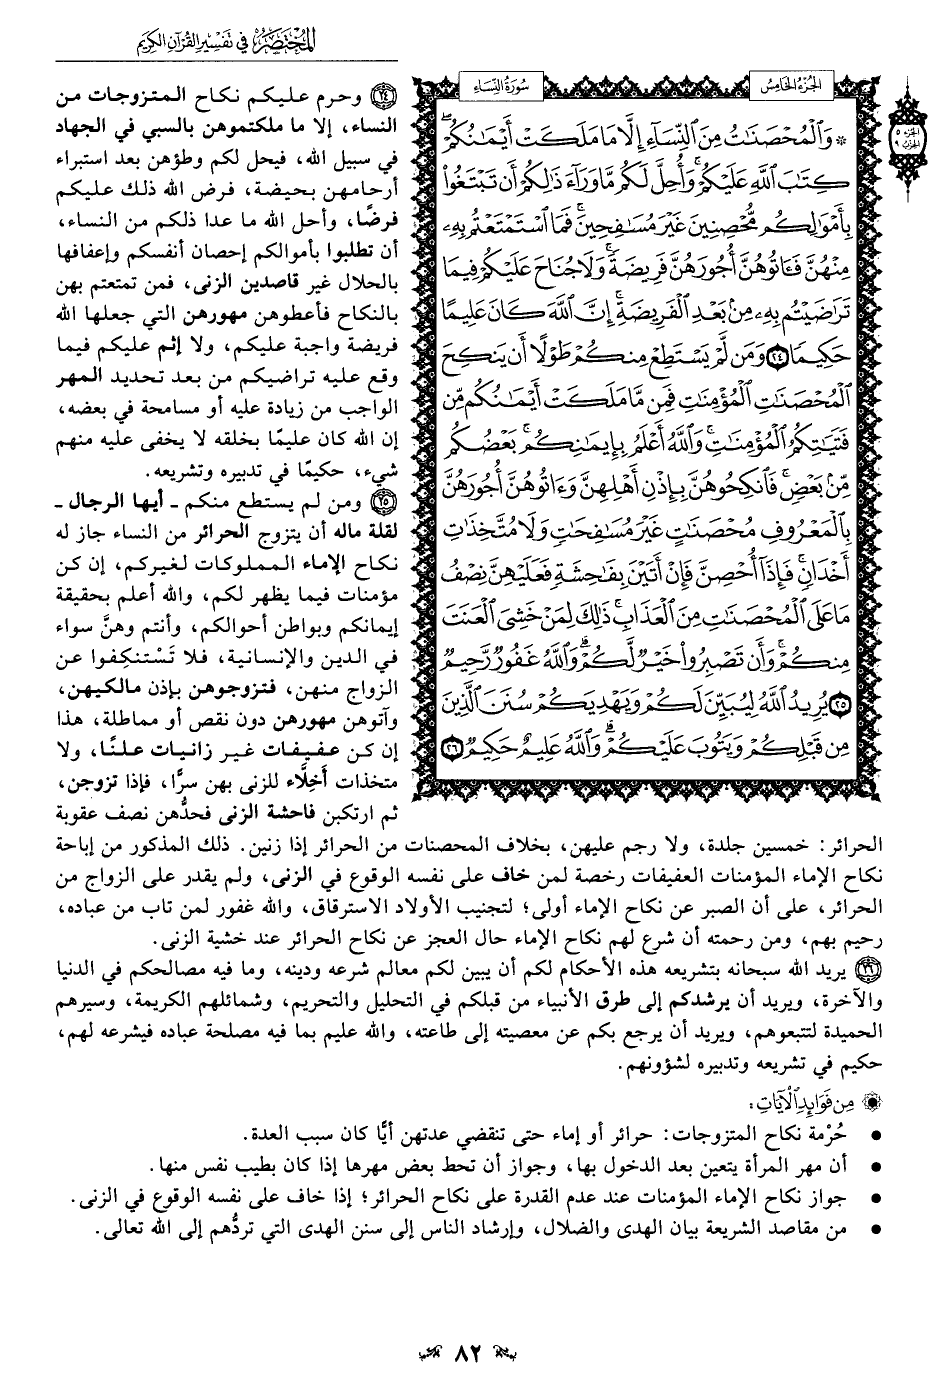 المختصر في تفسير القرآن الكريم
سورة النساء
الجزء الخامس
الجزء ٥
الحزب ٩
* وَٱلۡمُحۡصَنَٰتُ مِنَ ٱلنِّسَآءِ إِلَّا مَا مَلَكَتۡ أَيۡمَٰنُكُمۡۖ
كِتَٰبَ ٱللَّهِ عَلَيۡكُمۡۚ وَأُحِلَّ لَكُم مَّا وَرَآءَ ذَٰلِكُمۡ أَن تَبۡتَغُواْ
بِأَمۡوَٰلِكُم مُّحۡصِنِينَ غَيۡرَ مُسَٰفِحِينَۚ فَمَا ٱسۡتَمۡتَعۡتُم بِهِۦ
مِنۡهُنَّ فَـَٔاتُوهُنَّ أُجُورَهُنَّ فَرِيضَةٗۚ وَلَا جُنَاحَ عَلَيۡكُمۡ فِيمَا
تَرَٰضَيۡتُم بِهِۦ مِنۢ بَعۡدِ ٱلۡفَرِيضَةِۚ إِنَّ ٱللَّهَ كَانَ عَلِيمًا
حَكِيمٗا ٢٤ وَمَن لَّمۡ يَسۡتَطِعۡ مِنكُمۡ طَوۡلًا أَن يَنكِحَ
ٱلۡمُحۡصَنَٰتِ ٱلۡمُؤۡمِنَٰتِ فَمِن مَّا مَلَكَتۡ أَيۡمَٰنُكُم مِّن
فَتَيَٰتِكُمُ ٱلۡمُؤۡمِنَٰتِۚ وَٱللَّهُ أَعۡلَمُ بِإِيمَٰنِكُمۚ بَعۡضُكُم
مِّنۢ بَعۡضٖۚ فَٱنكِحُوهُنَّ بِإِذۡنِ أَهۡلِهِنَّ وَءَاتُوهُنَّ أُجُورَهُنَّ
بِٱلۡمَعۡرُوفِ مُحۡصَنَٰتٍ غَيۡرَ مُسَٰفِحَٰتٖ وَلَا مُتَّخِذَٰتِ
أَخۡدَانٖۚ فَإِذَآ أُحۡصِنَّ فَإِنۡ أَتَيۡنَ بِفَٰحِشَةٖ فَعَلَيۡهِنَّ نِصۡفُ
مَا عَلَى ٱلۡمُحۡصَنَٰتِ مِنَ ٱلۡعَذَابِۚ ذَٰلِكَ لِمَنۡ خَشِيَ ٱلۡعَنَتَ
مِنكُمۡۚ وَأَن تَصۡبِرُواْ خَيۡرٞ لَّكُمۡۗ وَٱللَّهُ غَفُورٞ رَّحِيمٞ
٢٥ يُرِيدُ ٱللَّهُ لِيُبَيِّنَ لَكُمۡ وَيَهۡدِيَكُمۡ سُنَنَ ٱلَّذِينَ
مِن قَبۡلِكُمۡ وَيَتُوبَ عَلَيۡكُمۡۗ وَٱللَّهُ عَلِيمٌ حَكِيمٞ ٢٦
٢٤ وحرم عليكم نكاح المتزوجات من
النساء، إلا ما ملكتموهن بالسبي في الجهاد
في سبيل الله، فيحل لكم وطؤهن بعد استبراء
أرحامهن بحيضة، فرض الله ذلك عليكم
فرضًا، وأحل الله ما عدا ذلكم من النساء،
أن تطلبوا بأموالكم إحصان أنفسكم وإعفافها
بالحلال غير قاصدين الزنى، فمن تمتعتم بهن
بالنكاح فأعطوهن مهورهن التي جعلها الله
فريضة واجبة عليكم، ولا إثم عليكم فيما
وقع عليه تراضيكم من بعد تحديد المهر
الواجب من زيادة عليه أو مسامحة في بعضه،
إن الله كان عليمًا بخلقه لا يخفى عليه منهم
شيء، حكيمًا في تدبيره وتشريعه.
٢٥ ومن لم يستطع منكم ـ أيها الرجال ـ
لقلة ماله أن يتزوج الحرائر من النساء جاز له
نكاح الإماء المملوكات لغيركم، إن كن
مؤمنات فيما يظهر لكم، والله أعلم بحقيقة
إيمانكم وبواطن أحوالكم، وأنتم وهنَّ سواء
في الدين والإنسانية، فلا تَسْتنكِفوا عن
الزواج منهن، فتزوجوهن بإذن مالكيهن،
وآتوهن مهورهن دون نقص أو مماطلة، هذا
إن كن عفيفات غير زانيات علنًا، ولا
متخذات أَخِلَّاء للزنى بهن سرًّا، فإذا تزوجن،
ثم ارتكبن فاحشة الزنى فحدُّهن نصف عقوبة
الحرائر: خمسين جلدة، ولا رجم عليهن، بخلاف المحصنات من الحرائر إذا زنين. ذلك المذكور من إباحة
نكاح الإماء المؤمنات العفيفات رخصة لمن خاف على نفسه الوقوع في الزنى، ولم يقدر على الزواج من
الحرائر، على أن الصبر عن نكاح الإماء أولى؛ لتجنيب الأولاد الاسترقاق، والله غفور لمن تاب من عباده،
رحيم بهم، ومن رحمته أن شرع لهم نكاح الإماء حال العجز عن نكاح الحرائر عند خشية الزنى.
٢٦ يريد الله سبحانه بتشريعه هذه الأحكام لكم أن يبين لكم معالم شرعه ودينه، وما فيه مصالحكم في الدنيا
والآخرة، ويريد أن يرشدكم إلى طرق الأنبياء من قبلكم في التحليل والتحريم، وشمائلهم الكريمة، وسيرهم
الحميدة لتتبعوهم، ويريد أن يرجع بكم عن معصيته إلى طاعته، والله عليم بما فيه مصلحة عباده فيشرعه لهم،
حكيم في تشريعه وتدبيره لشؤونهم.
من فوائد الآيات:
• حُرْمة نكاح المتزوجات: حرائر أو إماء حتى تنقضي عدتهن أيًّا كان سبب العدة.
• أن مهر المرأة يتعين بعد الدخول بها، وجواز أن تحط بعض مهرها إذا كان بطيب نفس منها.
• جواز نكاح الإماء المؤمنات عند عدم القدرة على نكاح الحرائر؛ إذا خاف على نفسه الوقوع في الزنى.
• من مقاصد الشريعة بيان الهدى والضلال، وإرشاد الناس إلى سنن الهدى التي تردُّهم إلى الله تعالى.
٨٢